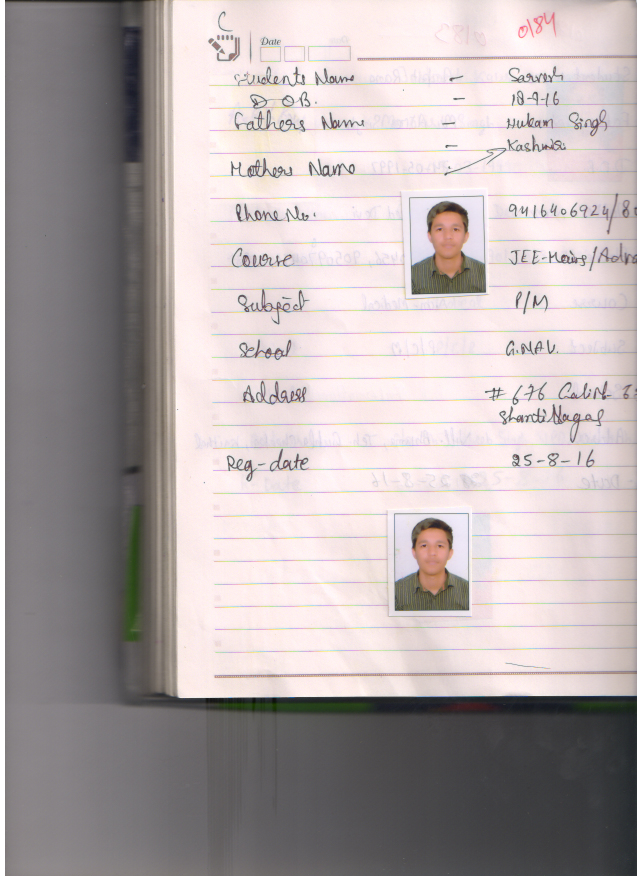 C
0184
Date
Students Name - Sarvesh
D OB. - 18-9-16
Fathers Name - Hukam Singh
- Kashmiri
Mothers Name -
Phone No. 9416406924/80
Course JEE-Mains/Adva
Subject P/M
School G.MAV.
Address # 676 Gali No-
Shanti Nagar
Reg-date 25-8-16